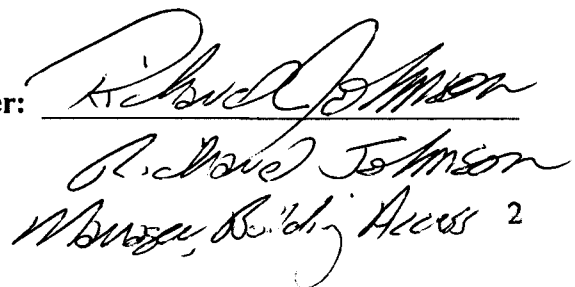 er: Richard Johnson
Richard Johnson
Manager, Building Access 2